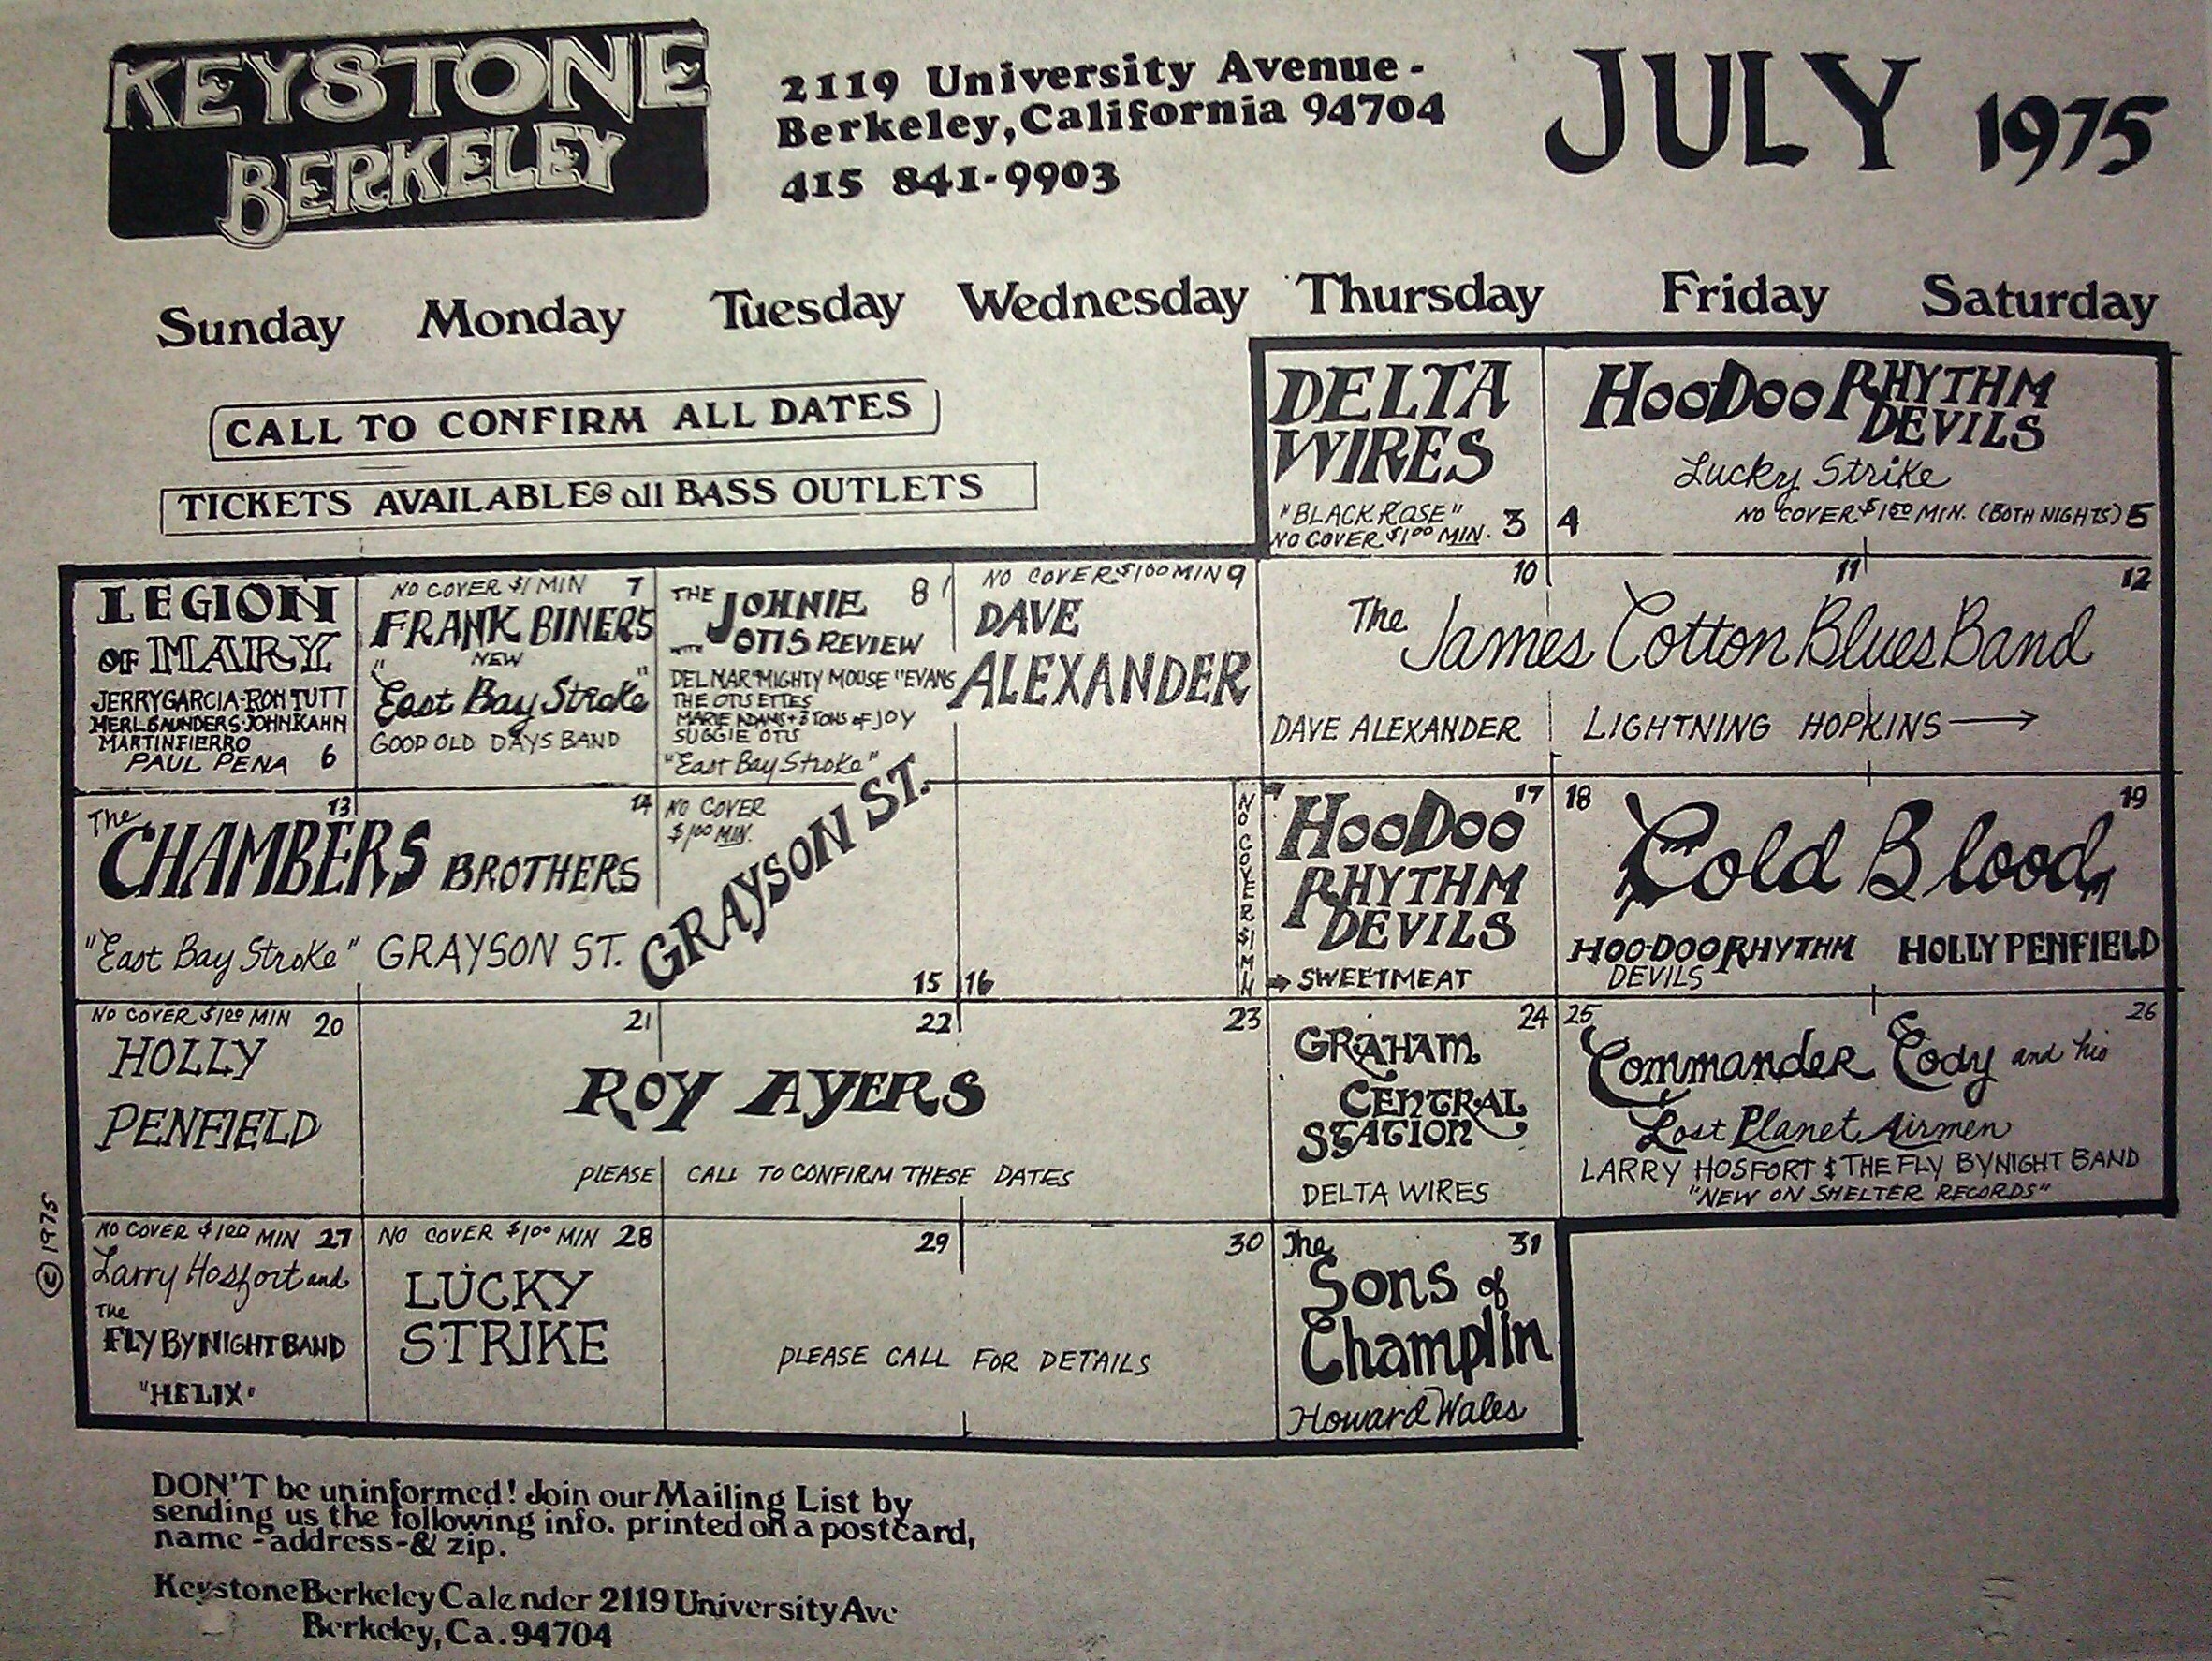 KEYSTONE
BERKELEY
2119 University Avenue -
Berkeley, California 94704
415 841-9903
JULY 1975
Sunday Monday Tuesday Wednesday Thursday Friday Saturday
CALL TO CONFIRM ALL DATES
TICKETS AVAILABLE @ all BASS OUTLETS
DELTA
WIRES
"BLACK ROSE"
NO COVER $1.00 MIN. 3
HOODOO RHYTHM
DEVILS
Lucky Strike
4 NO COVER $1.00 MIN. (BOTH NIGHTS) 5
LEGION
OF MARY
JERRY GARCIA-RON TUTT
MERL SAUNDERS-JOHN KAHN
MARTIN FIERRO
PAUL PENA 6
NO COVER $1 MIN 7
FRANK BINERS
NEW
"East Bay Stroke"
GOOD OLD DAYS BAND
THE JOHNIE 8
OTIS REVIEW
WITH
DELMAR "MIGHTY MOUSE" EVANS
THE OTIS ETTES
MARIE ADAMS + 3 TONS OF JOY
SUGGIE OTIS
"East Bay Stroke"
NO COVER $1.00 MIN 9
DAVE
ALEXANDER
10 11 12
The James Cotton Blues Band
DAVE ALEXANDER LIGHTNING HOPKINS →
13 14
The CHAMBERS BROTHERS
"East Bay Stroke" GRAYSON ST.
NO COVER
$1.00 MIN.
GRAYSON ST.
15 16
NO COVER $1 MIN
HOODOO 17
RHYTHM
DEVILS
→ SWEETMEAT
18 19
Cold Blood
HOO-DOO RHYTHM HOLLY PENFIELD
DEVILS
NO COVER $1.00 MIN 20
HOLLY
PENFIELD
21 22 23
ROY AYERS
PLEASE CALL TO CONFIRM THESE DATES
24
GRAHAM
CENTRAL
STATION
DELTA WIRES
25 26
Commander Cody and his
Lost Planet Airmen
LARRY HOSFORT & THE FLY BYNIGHT BAND
"NEW ON SHELTER RECORDS"
NO COVER $1.00 MIN 27
Larry Hosfort and
The
FLY BY NIGHT BAND
"HELIX"
NO COVER $1.00 MIN 28
LUCKY
STRIKE
29 30
PLEASE CALL FOR DETAILS
The 31
Sons of
Champlin
Howard Wales
© 1975
DON'T be uninformed! Join our Mailing List by
sending us the following info. printed on a postcard,
name -address-& zip.
Keystone Berkeley Calender 2119 University Ave
Berkeley, Ca. 94704